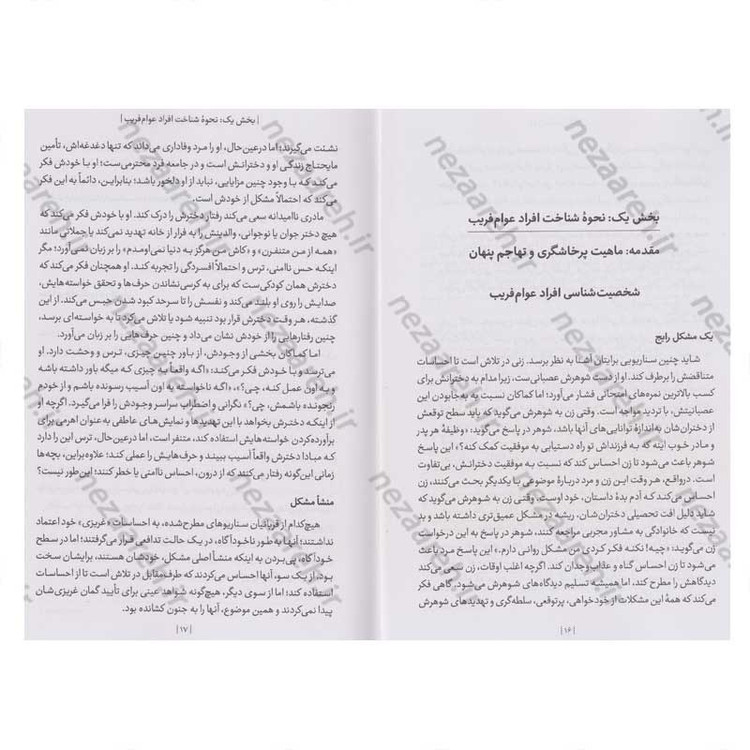 بخش یک: نحوهٔ شناخت افراد عوام‌فریب
مقدمه: ماهیت پرخاشگری و تهاجم پنهان
شخصیت‌شناسی افراد عوام‌فریب
یک مشکل رایج
شاید چنین سناریویی برایتان آشنا به نظر برسد. زنی در تلاش است تا احساسات
متناقضش را برطرف کند. او از دست شوهرش عصبانی‌ست، زیرا مدام به دخترانش برای
کسب بالاترین نمره‌های امتحانی فشار می‌آورد؛ اما کماکان نسبت به به‌جابودن این
عصبانیتش، با تردید مواجه است. وقتی زن به شوهرش می‌گوید که باید سطح توقعش
از دختران‌شان به اندازهٔ توانایی‌های آنها باشد، شوهر در پاسخ می‌گوید: «وظیفهٔ هر پدر
و مادر خوب اینه که به فرزنداش تو راه دستیابی به موفقیت کمک کنه؟» این پاسخ
شوهر باعث می‌شود تا زن احساس کند که نسبت به موفقیت دخترانش، بی‌تفاوت
است. درواقع، هر وقت این زن و مرد دربارهٔ موضوعی با یکدیگر بحث می‌کنند، زن
احساس می‌کند که آدم بدهٔ داستان، خود اوست. وقتی زن به شوهرش می‌گوید که
شاید دلیل افت تحصیلی دختران‌شان، ریشه در مشکل عمیق‌تری داشته باشد و بد
نیست که خانوادگی به مشاور مجربی مراجعه کنند، شوهر در پاسخ به این حرف
زن می‌گوید: «چیه؟ نکنه فکر کردی من مشکل روانی دارم.» این پاسخ مرد باعث
می‌شود تا زن احساس گناه و عذاب وجدان کند. اگرچه اغلب اوقات، زن سعی می‌کند
دیدگاهش را مطرح کند، اما همیشه تسلیم دیدگاه‌های شوهرش می‌شود. گاهی فکر
می‌کند که همهٔ این مشکلات از خودخواهی، پرتوقعی، سلطه‌گری و تهدیدهای شوهرش
| ۱۶ |
| بخش یک: نحوهٔ شناخت افراد عوام‌فریب |
نشئت می‌گیرند؛ اما درعین‌حال، او را مرد وفاداری می‌داند که تنها دغدغه‌اش، تأمین
مایحتاج زندگی او و دخترانش است و در جامعه فرد محترمی‌ست؛ او با خودش فکر
می‌کند که با وجود چنین مزایایی، نباید از او دلخور باشد؛ بنابراین، دائماً به این فکر
می‌کند که احتمالاً مشکل از خودش است.
مادری ناامیدانه سعی می‌کند رفتار دخترش را درک کند. او با خودش فکر می‌کند که
هیچ دختر جوان یا نوجوانی، والدینش را به فرار از خانه تهدید نمی‌کند یا جملاتی مانند
«همه از من متنفرن» و «کاش من هرگز به دنیا نمی‌اومدم.» را بر زبان نمی‌آورد؛ مگر
اینکه حس ناامنی، ترس و احتمالاً افسردگی را تجربه کند. او همچنان فکر می‌کند که
دخترش همان کودکی‌ست که برای به کرسی نشاندن حرف‌ها و تحقق خواسته‌هایش،
صدایش را روی او بلند می‌کند و نفسش را تا سرحد کبود شدن حبس می‌کند. از
گذشته، هر وقت دخترش قرار بود تنبیه شود یا تلاش می‌کرد تا به خواسته‌ای برسد،
چنین رفتارهایی را از خودش نشان می‌داد و چنین حرف‌هایی را بر زبان می‌آورد.
اما کماکان بخشی از وجودش، از باور چنین چیزی، ترس و وحشت دارد. او
می‌ترسد و با خودش فکر می‌کند: «اگه واقعاً به چیزی که میگه باور داشته باشه
و به اون عمل کنه، چی؟»، «اگه ناخواسته به اون آسیب رسونده باشم و از خودم
رنجونده باشمش، چی؟» نگرانی و اضطراب سراسر وجودش را فرا می‌گیرد. اگرچه او
از اینکه دخترش بخواهد با این تهدیدها و نمایش‌های عاطفی به عنوان اهرمی برای
برآورده‌کردن خواسته‌هایش استفاده کند، متنفر است، اما درعین‌حال، ترس این را دارد
که مبادا دخترش واقعاً آسیب ببیند و حرف‌هایش را عملی کند؛ علاوه‌براین، بچه‌ها
زمانی این‌گونه رفتار می‌کنند که از درون، احساس ناامنی یا خطر کنند؛ این‌طور نیست؟
منشأ مشکل
هیچ‌کدام از قربانیان سناریوهای مطرح‌شده، به احساسات «غریزی» خود اعتماد
نداشتند؛ آنها به‌طور ناخودآگاه، در یک حالت تدافعی قرار می‌گرفتند؛ اما در سطح
خودآگاه، پی‌بردن به اینکه منشأ اصلی مشکل، خودشان هستند، برایشان سخت
بود. از یک سو، آنها احساس می‌کردند که طرف مقابل در تلاش است تا از احساسات
استفاده کند؛ اما از سوی دیگر، هیچ‌گونه شواهد عینی برای تأیید گمان غریزی‌شان
پیدا نمی‌کردند و همین موضوع، آنها را به جنون کشانده بود.
| ۱۷ |
nezaareh.ir